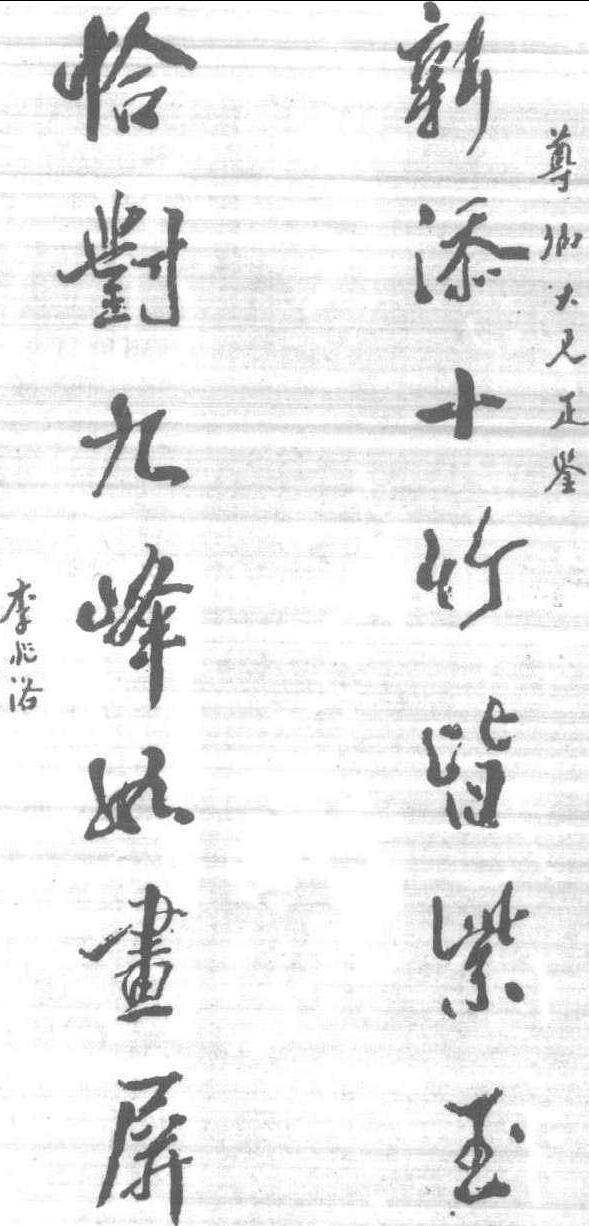 尊卿大兄正鉴
新添十竹皆紫玉
恰對九峰如畫屏
李兆洛